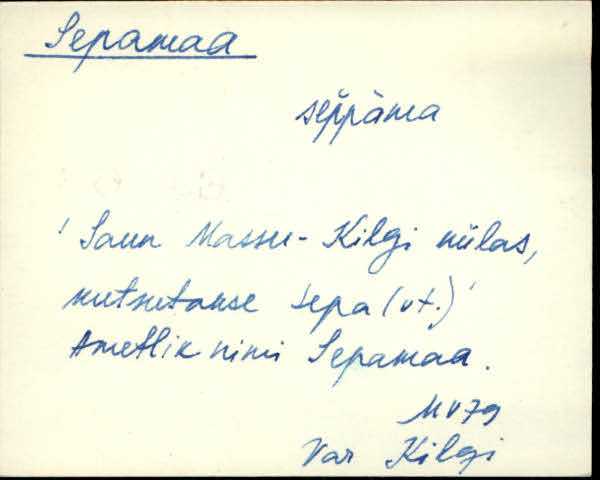 Sepamaa
sĕppäma
' Saun Massu-Kilgi külas,
kutsutakse Sepa (vt.) '
Ametlik nimi Sepamaa.
MV79
Var Kilgi